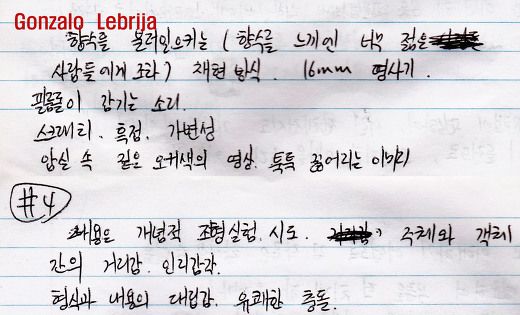 Gonzalo Lebrija
향수를 불러일으키는 (향수를 느끼엔 너무 젊은
사람들에게 조차) 재현 방식. 16mm 영사기.
필름이 감기는 소리.
스크래치. 흑점. 가변성
암실 속 짙은 오커색의 영상. 툭툭 끊어리는 이미지
#4
내용은 개념적 조형실험. 시도. 주체와 객체
간의 거리감. 원리감각.
형식과 내용의 대립감. 유쾌한 충돌.